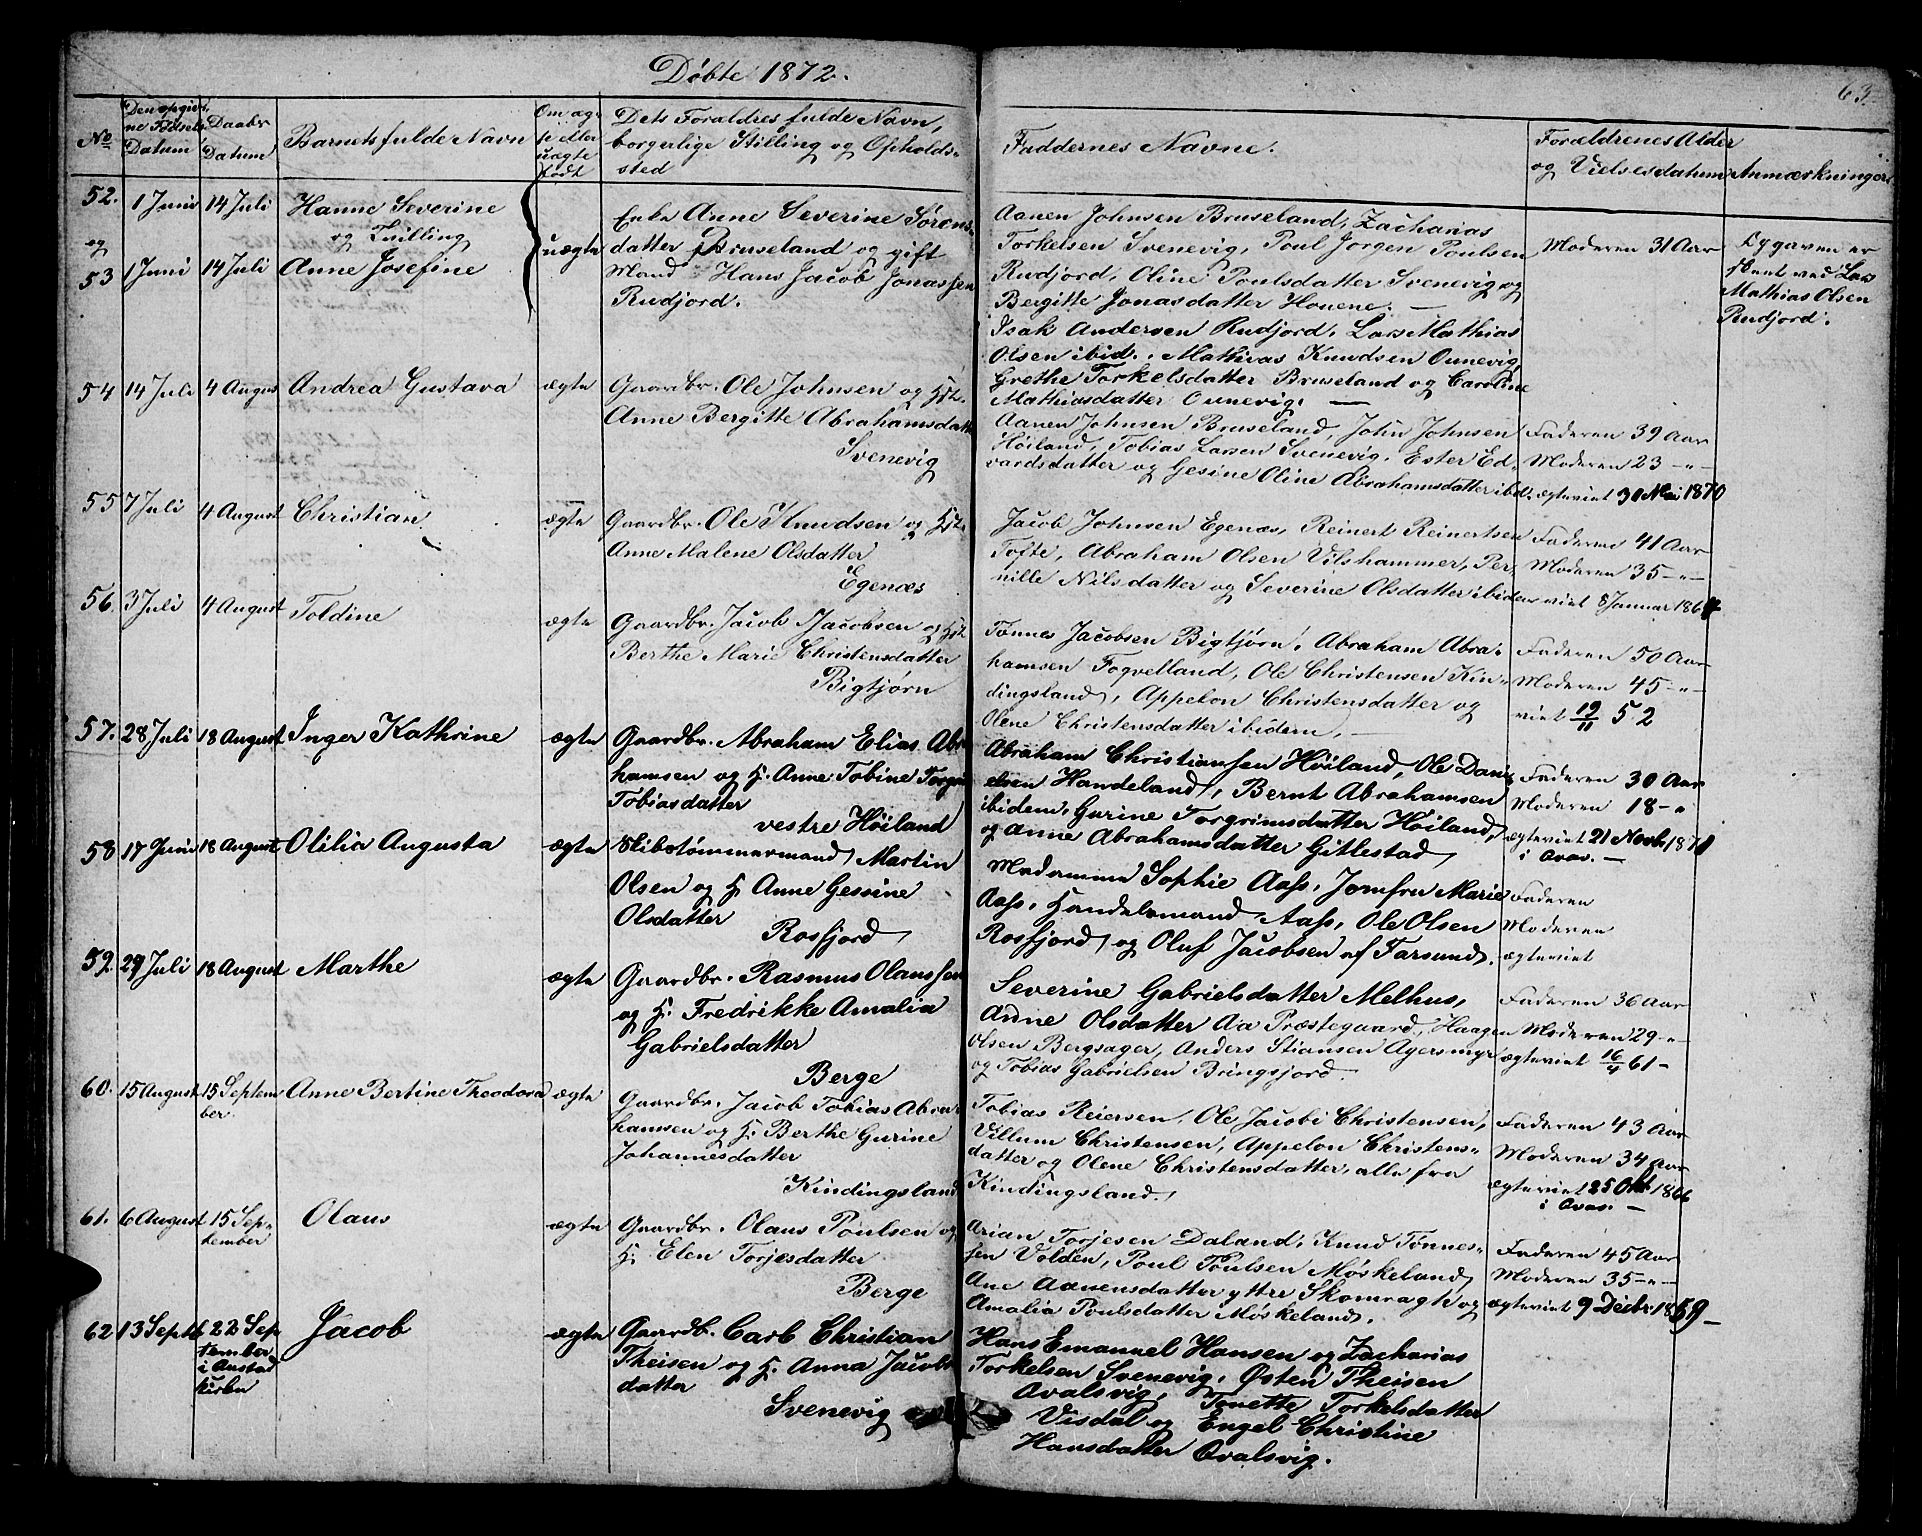 Döbte 1872.
63.
No
Den opgiv-
ne Födsels
Datum
Daabs
Datum
Barnets fulde Navn
Om æg-
te eller
uægte
födt
Dets Foraldres fulde Navn,
borgerlige Stilling og Opholds-
sted
Faddernes Navne.
Forældrenes Alder
og Vielsesdatum
Anmærkninger
52. 1 Juni 14 Juli Hanne Severine
og Tvilling
og
53 1 Juni 14 Juli Anne Josefine
uægte
Enke Anne Severine Sörens-
datter Bruseland og gift
Mand Hans Jacob Jonassen
Rudjord.
Aanen Johnsen Bruseland, Zacharias
Torkelsen Svenevig, Poul Jorgen Poulsen
Rudjord, Oline Poulsdatter Svenevig og
Bergitte Jonasdatter Houene. —
Isak Andersen Rudjord, Lars Mathias
Olsen ibid., Mathias Knudsen Ounevig,
Grethe Torkelsdatter Bruseland og Caroline
Mathiasdatter Ounevig. —
Moderen 31 Aar
Opgaven er
ved Lars
Mathias Olsen
Rudjord.
54 14 Juli 4 August Andrea Gustava ægte
Gaardbr. Ole Johnsen og Hst.
Anne Bergitte Abrahamsdatter
Svenevig
Aanen Johnsen Bruseland, John Johnsen
Höiland, Tobias Larsen Svenevig, Ester Ed-
vardsdatter og Gesine Oline Abrahamsdatter ibid.
Faderen 39 Aar
Moderen 23 -"-
ægteviet 31 Mai 1870
55 7 Juli 4 August Christian ægte
Gaardbr. Ole Knudsen og Hst.
Anne Malene Olsdatter
Egenæs
Jacob Johnsen Egenæs, Reinert Reinertsen
Tofte, Abraham Olsen Vilshammer, Per-
nille Nilsdatter og Severine Olsdatter ibidem
Faderen 41 Aar
Moderen 35 -"-
viet 8 Januar 1864
56. 3 Juli 4 August Toldine ægte
Gaardbr. Jacob Jacobsen og Hst.
Berthe Marie Christensdatter
Bigtjörn
Tönnes Jacobsen Bigtjörn, Abraham Abra-
hamsen Fogvelland, Ole Christensen Kin-
dingsland, Appelon Christensdatter og
Olene Christensdatter ibidem. —
Faderen 50 Aar
Moderen 45 -"-
viet 19/11 52
57. 28 Juli 18 August Inger Kathrine ægte
Gaardbr. Abraham Elias Abra
hamsen og H. Anne Tobine
Tobiasdatter
vestre Höiland
Abraham Christiansen Höiland, Ole Dani-
elsen Handeland, Bernt Abrahamsen
ibidem, Gurine Torgrimsdatter Höiland,
og Anne Abrahamsdatter Gitlestad
Faderen 30 Aar
Moderen 18 - "
ægteviet 21 Novbr 1871
i Qvas. —
58 17 Juni 18 August Olilia Augusta ægte
Skibstömmermand Martin
Olsen og H. Anne Gessine
Olsdatter
Rosfjord
Madamme Sophie Aass, Jomfru Marie
Aass, Handelsmand Aass, Ole Olsen
Rosfjord og Oluf Jacobsen af Farsund.
Faderen
Moderen
ægteviet
59. 29 Juli 18 August Marthe ægte
Gaardbr. Rasmus Olaussen
og H. Fredrikke Amalia
Gabrielsdatter
Berge
Severine Gabrielsdatter Melhus,
Anne Olsdatter Aa Præstegaard, Haagen
Olsen Bergsager, Anders Stiansen Agersmyr
og Tobias Gabrielsen Bringsjord.
Faderen 36 Aar
Moderen 29 -"-
ægteviet 16/4 61 -
60. 15 August 15 Septem
ber.
Anne Bertine Theodora ægte
Gaardbr. Jacob Tobias Abra-
hamsen og H. Berthe Gurine
Johannesdatter
Kindingsland
Tobias Reiersen, Ole Jacobi Christensen,
Villum Christensen, Appelon Christens-
datter og Olene Christensdatter, alle fra
Kindingsland.
Faderen 43 Aar
Moderen 34 Aar
ægteviet 25 Okt. 1866
i Qvas. —
61. 6 August 15 Sep-
tember
Olaus ægte
Gaardbr. Olaus Poulsen og
H. Elen Torjesdatter
Berge
Arian Torjesen Daland, Knud Tönnes-
sen Volden, Poul Poulsen Möskeland
Ane Aanensdatter yttre Skomragk og
Amalia Poulsdatter Möskeland.
Faderen 45 Aar
Moderen 35 -"-
ægteviet 9 Decbr. 1859 -
62 13 Septb 22 Sep
tember
i Austad
Kirke
Jacob ægte
Gaardb. Carb Christian
Theisen og H. Anna Jacobs
datter
Svenevig
Hans Emanuel Hansen og Zacharias
Torkelsen Svenevig, Østen Theisen
Qvalsvig, Tonette Torkelsdatter
Visdal og Engel Christine
Hansdatter Qvalsvig.